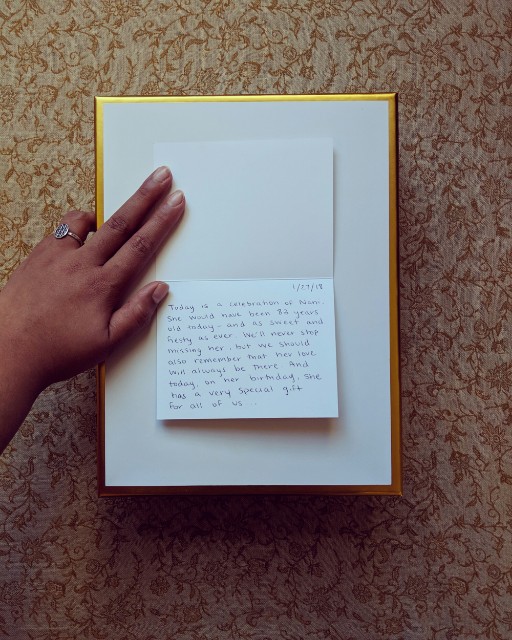 1/27/18
Today is a celebration of Nani.
She would have been 82 years
old today - and as sweet and
feisty as ever. We'll never stop
missing her, but we should
also remember that her love
will always be there. And
today, on her birthday, she
has a very special gift
for all of us...